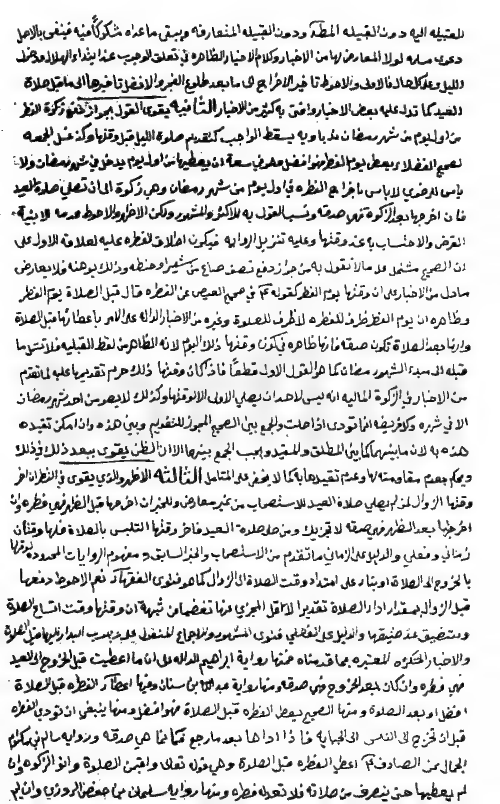 للقبيلة اليه دون القبيلة المطلقة ودون القبيلة المتعارفة ويبقى ما عداه مشكوكا فيه فينفى بالاصل
دعوى مسلمة لولا المعارض لها من الاخبار وكلام الاخيار الظاهرة في تعلق الوجوب عند ابتداء الهلال ودخول
الليل وعلى كل حال فالاولى والاحوط تاخير الاخراج الى ما بعد طلوع الفجر والافضل تاخيرها الى ما قبل صلاة
العيد كما تدل عليه بعض الاخبار وافتى به كثير من الاخيار الثانية يقوى القول بجواز تقديم زكوة الفطر
من اول يوم من شهر رمضان وانه يسقط الواجب كتقديم صلوة الليل قبل وقتها وكغسل الجمعة
لصحيح الفضلاء يعطى يوم الفطر فهو افضل وهو في سعة ان يعطيها من اول يوم يدخل في شهر رمضان ولا
باس باخراج الفطرة في اول يوم من شهر رمضان وهي زكوة الى ان تصلي صلاة العيد
فان اخرجها بعد الزكوة فهي صدقة ونسب القول به للاكثر والمشهور ولكن الاظهر والاحوط عدمه الا بنية
القرض والاحتساب به عند وقتها وعليه تنزيل الرواية فيكون اطلاق الفطرة عليه لعلاقة الاول على
ان الصحيح مشتمل على ما لا نقول به من جواز دفع نصف صاع من شعير او حنطة وذلك يوهنه فلا يعارض
ما دل من الاخبار على ان وقتها يوم الفطر كقوله في صحيح العيص عن الفطرة قال قبل الصلاة يوم الفطر
وظاهره ان يوم الفطر ظرف للفطرة لا ظرف للصلوة وغيره من الاخبار الدالة على الامر باعطائها قبل الصلاة
وانها بعد الصلاة تكون صدقة فانها ظاهرة في كون وقتها ذلك اليوم لانه الظاهر من لفظ القبلية فلا تشمل ما
قبله الى مبدء الشهر رمضان كما هو القول الاول قطعا فاذا كان وقتها ذلك حرم تقديرها عليه لما تقدم
من الاخبار في الزكوة المالية انه ليس لاحد ان يصلي الاولى الا لوقتها وكذلك لا يصوم احد شهر رمضان
الا في شهره وكل فريضة انما تودى اذا حلت والجمع بين الصحيح المجوز للتقديم وبين هذه وان امكن بتقييده
هذه به لان ما بينهما كما بين المطلق والمقيد ويجب الجمع بينهما الا ان الظن يقوى ببعد ذلك في ذلك
ويحكم بعدم مقاومته لها وعدم تقييدها به كما لا يخفى على المتامل الثالثة الاظهر والذي يقوى في النظر ان اخر
وقتها الزوال لمن لم يصلي صلاة العيد للاستصحاب من غير معارض وللخبر ان اخرجها قبل الظهر فهي فطرة وان
اخرجها بعد الظهر فهي صدقة لا تجزيك ومن صلى صلاة العيد فاخر وقتها التلبس بالصلاة فلها وقتان
زماني وفعلي والدليل على الزماني ما تقدم من الاستصحاب والخبر السابق ومفهوم الروايات المحدودة وقتها
بالخروج الى الصلاة او بناء على امتداد وقت الصلاة الى الزوال كما هو فتوى الفقهاء نعم الاحوط دفعها
قبل الزوال بمقدار اداء الصلاة تقديرا لاقل المجزي منها تفصيا من شبهة ان وقتها وقت اتساع الصلاة
ومتضيق عند ضيقها والدليل على الفعلي فتوى المشهور والاجماع المنقول على
والاخبار المتكثرة المعتبرة مما قدمناه فمنها رواية ابراهيم الدالة على ان ما اعطيت قبل الخروج الى العيد
فهي فطرة وان كان بعد الخروج فهي صدقة ومنها رواية عبد الله بن سنان ومنها اعطاء الفطرة قبل الصلاة
افضل وبعد الصلوة صدقة ومنها الصحيح يعطى الفطرة قبل الصلاة فهو افضل ومنها ينبغي ان تودى الفطرة
قبل ان تخرج الى الناس الى الجبانة فاذا اداها بعد ما رجع فانما هي صدقة ورواية سالم بن مكرم
الجمال عن الصادق اعطي الفطرة قبل الصلاة وهي قوله تعالى واقيموا الصلوة واتوا الزكوة وان
لم يعطيها حتى ينصرف من صلاته فلا تعد له فطرة ومنها رواية سليمان بن حفص المروزي وان لم